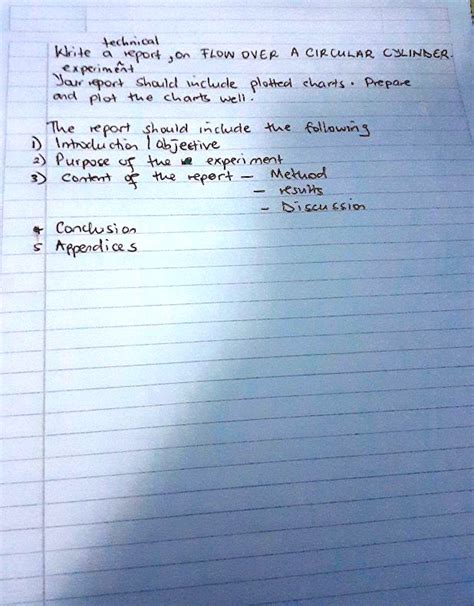 technical
Write a report, on FLOW OVER A CIRCULAR CYLINDER.
experiment
Your report should include plotted charts. Prepare
and plot the charts well.
The report should include the following
1) Introduction / objective
2) Purpose of the experiment
3) Content of the report – Method
– results
– Discussion
4 Conclusion
5 Appendices